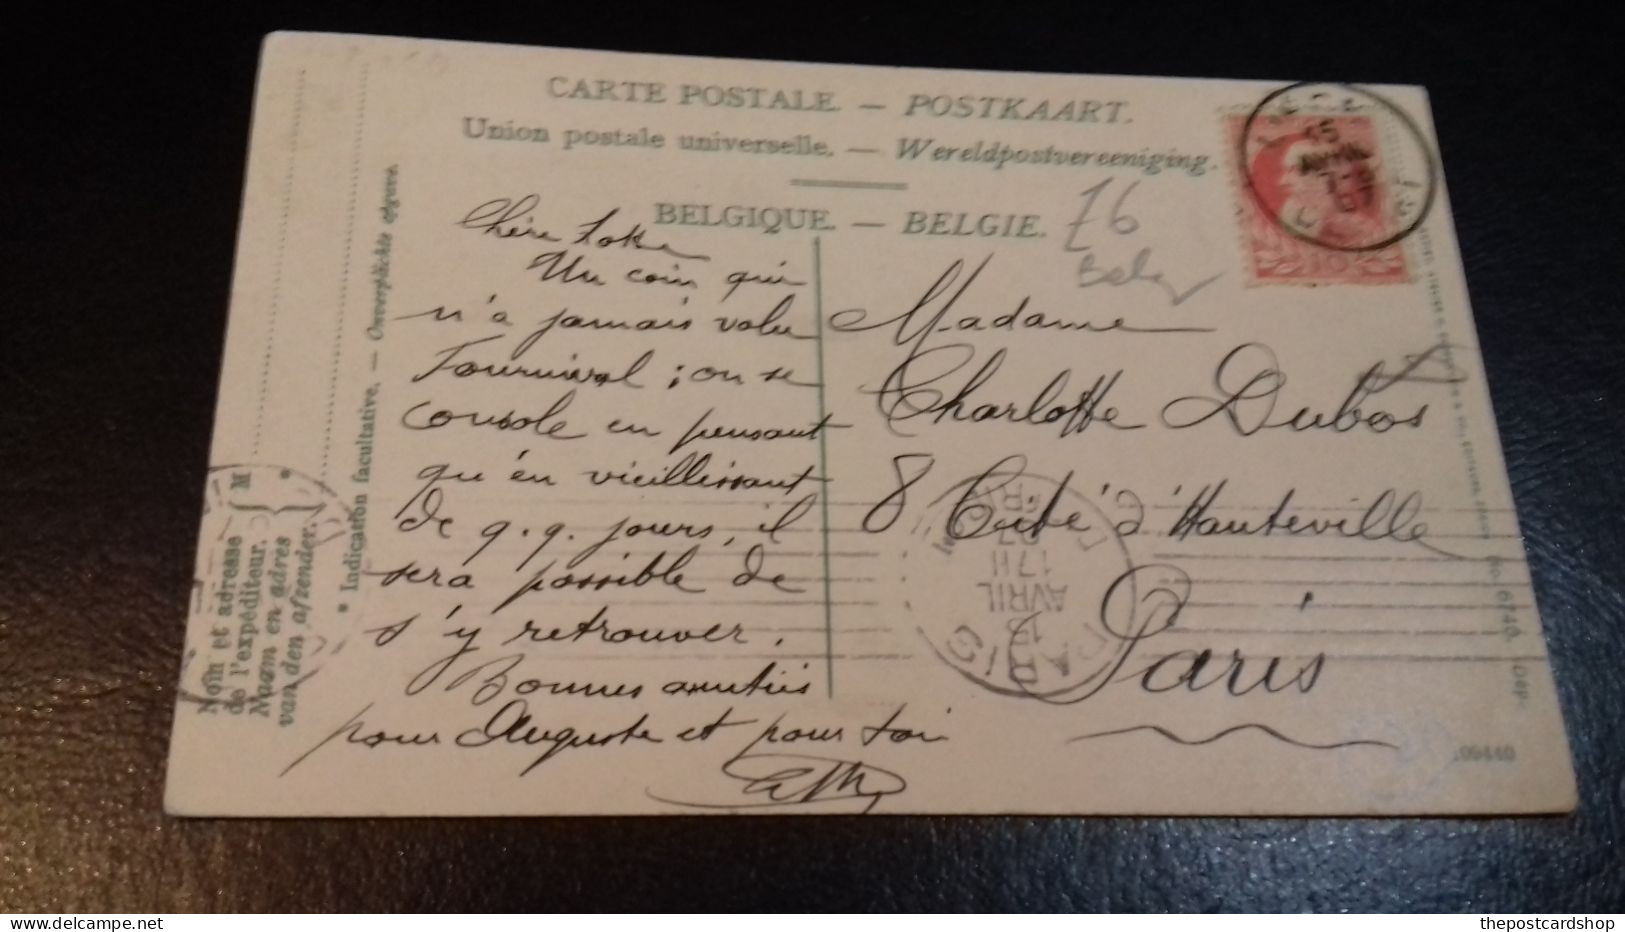 CARTE POSTALE. — POSTKAART.
Union postale universelle. — Wereldpostvereeniging.
BELGIQUE. — BELGIE.
76
Chère Loke
Un coin qui
n'a jamais valu
Tournival ; on se
console en pensant
qu'en vieillissant
de q.q. jours, il
sera possible de
s'y retrouver.
Bonnes amitiés
pour Auguste et pour toi
Madame
Charlotte Dubos
8 Cité d'Hauteville
Paris
* Indication facultative. — Onverplichte opgave.
Nom et adresse
de l'expéditeur.
Naam en adres
van den afzender.
M
*
10
15
07
PARIS
15
AVRIL
17 H
thepostcardshop